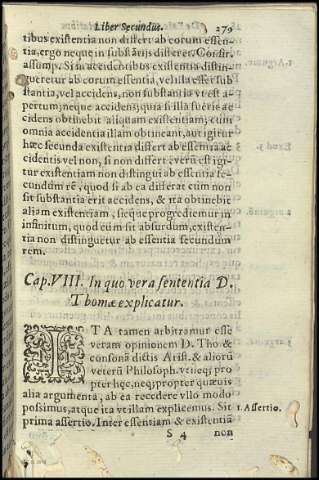 Liber Secundus. 279
tibus existentia non differt ab eorum essen-
tia, ergo neque in substãtijs differet. Confir.
assump. Si in accidentibus existentia distin-
gueretur ab eorum essentia, vel illa esset sub
stantia, vel accidens, non substantia vt est a-
pertum; neque accidens, quia si illa fuerit ac
cidens obtinebit aliquam existentiam; cum
omnia accidentia illam obtineant, aut igitur
hæc secunda existentia differt ab essentia ac
cidentis vel non, si non differt, verũ est igi-
tur existentiam non distingui ab essentia se-
cundum rẽ, quod si ab ea differat cùm non
sit substantia erit accidens, & ita obtinebit
aliam existentiam, sicque progrediemur in
infinitum, quod cum sit absurdum, existen-
tia non distinguetur ab essentia secundum
rem.
Cap. VIII. In quo vera sententia D.
Thomæ explicatur.
ITA tamen arbitramur esse
veram opinionem D. Tho &
consonã dictis Arist. & aliorũ
veterũ Philosoph. vt neq; pro
pter hęc, neq; propter quæuis
alia argumenta, ab ea recedere vllo modo
possimus, atque ita vt illam explicemus. Sit
1. Assertio.
prima assertio. Inter essentiam & existentiã
S 4 non